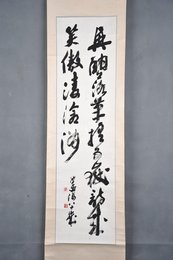 興酣落筆搖五嶽詩成
笑傲凌滄洲